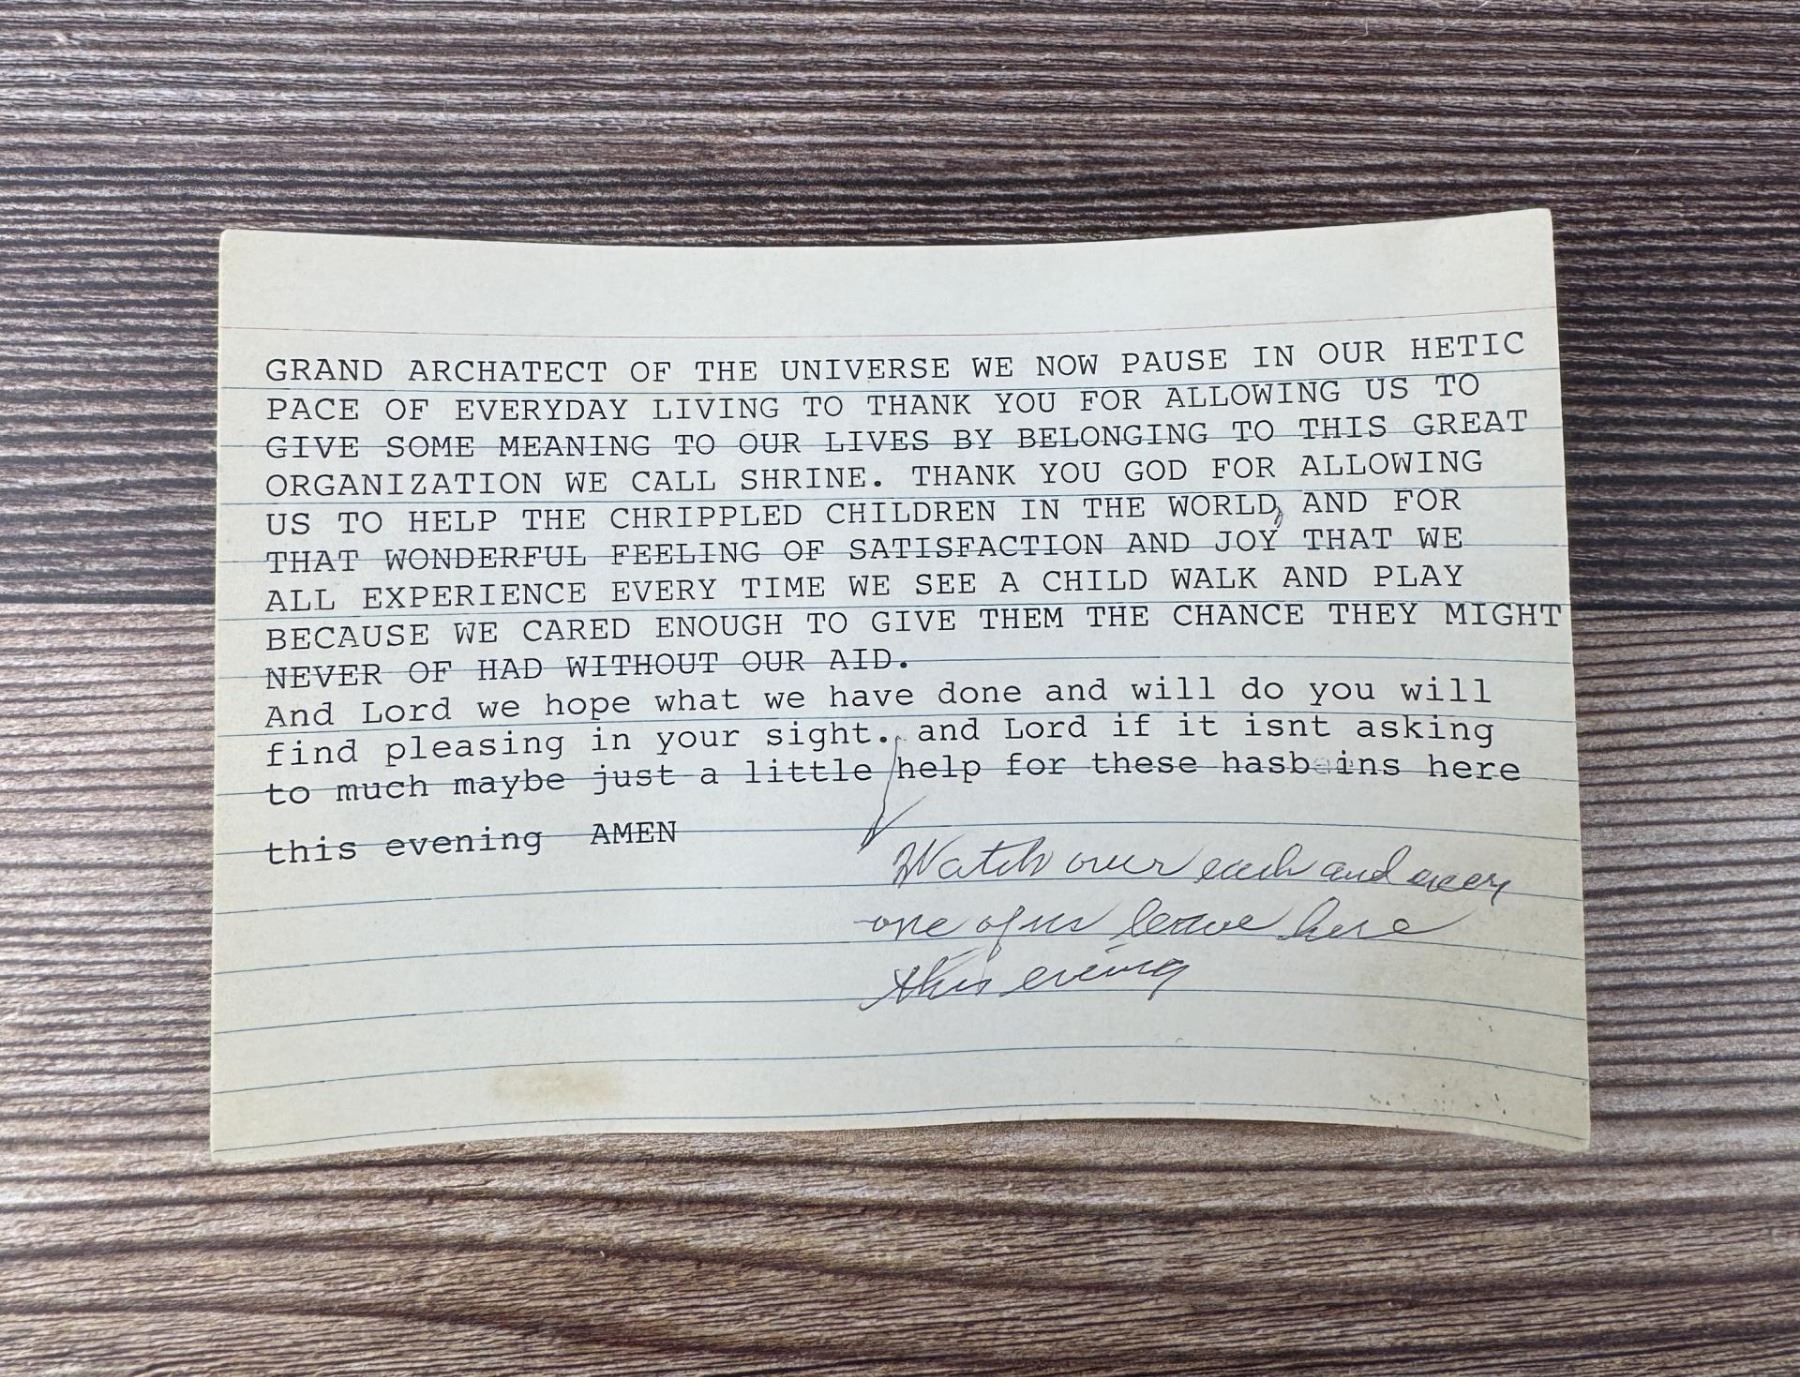 GRAND ARCHATECT OF THE UNIVERSE WE NOW PAUSE IN OUR HETIC
PACE OF EVERYDAY LIVING TO THANK YOU FOR ALLOWING US TO
GIVE SOME MEANING TO OUR LIVES BY BELONGING TO THIS GREAT
ORGANIZATION WE CALL SHRINE. THANK YOU GOD FOR ALLOWING
US TO HELP THE CHRIPPLED CHILDREN IN THE WORLD, AND FOR
THAT WONDERFUL FEELING OF SATISFACTION AND JOY THAT WE
ALL EXPERIENCE EVERY TIME WE SEE A CHILD WALK AND PLAY
BECAUSE WE CARED ENOUGH TO GIVE THEM THE CHANCE THEY MIGHT
NEVER OF HAD WITHOUT OUR AID.
And Lord we hope what we have done and will do you will
find pleasing in your sight. and Lord if it isnt asking
to much maybe just a little help for these hasbeins here
this evening AMEN
Watch over each and every
one of us leave here
this evening